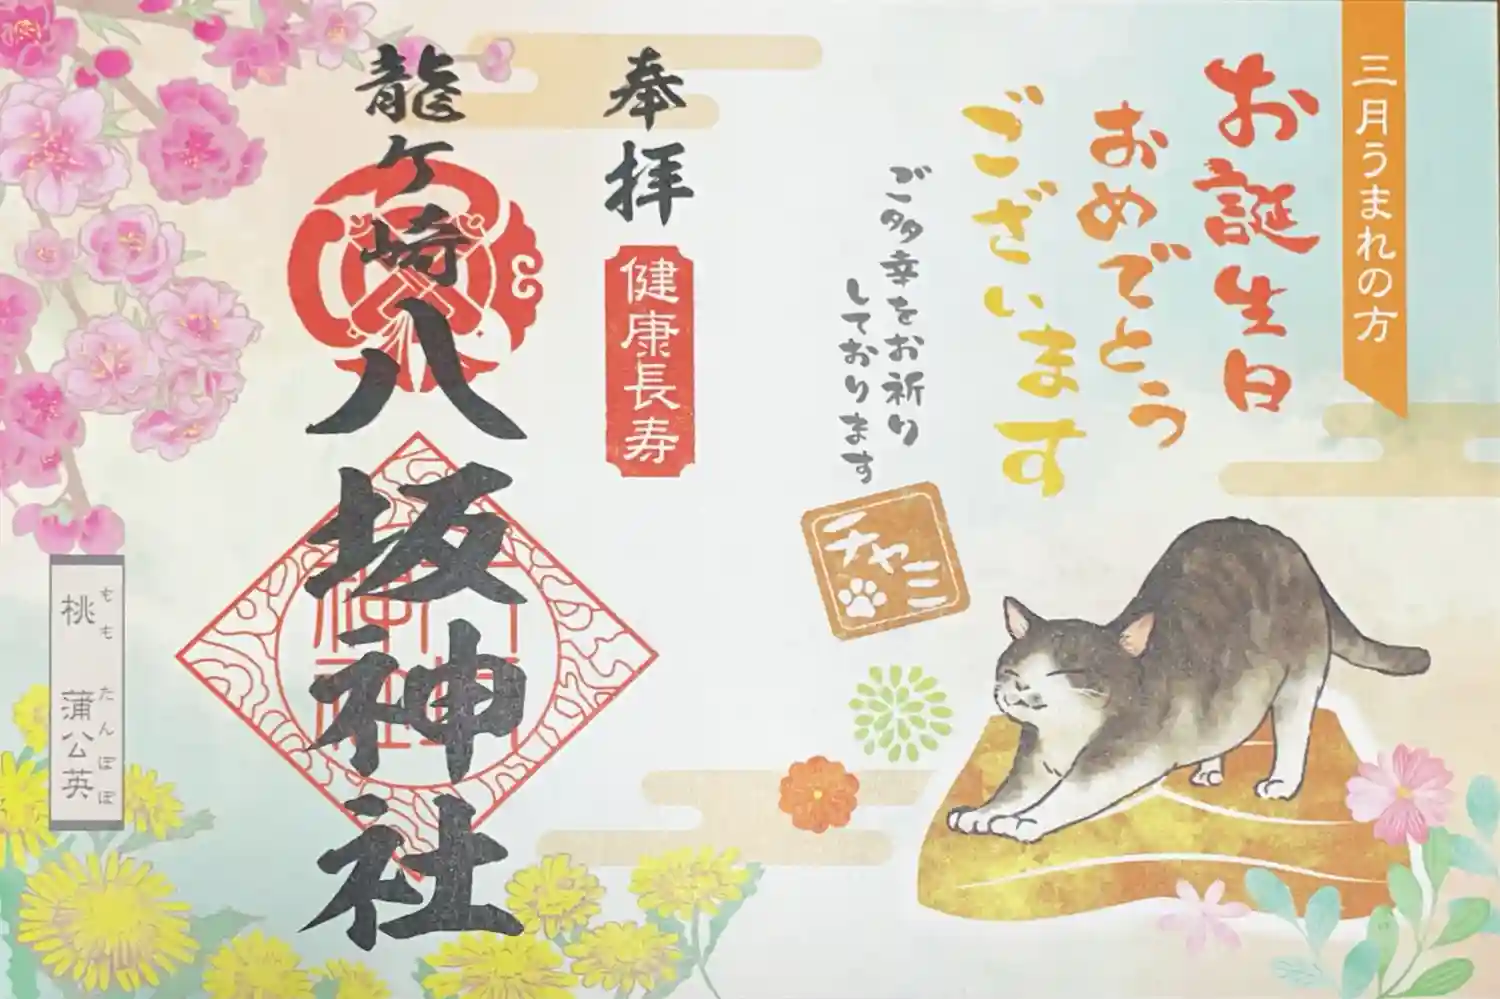 三月うまれの方
お誕生日
おめでとう
ございます
ご多幸をお祈り
しております
チャミ
奉拝
健康長寿
龍ケ崎八坂神社
桃 もも
蒲公英 たんぽぽ